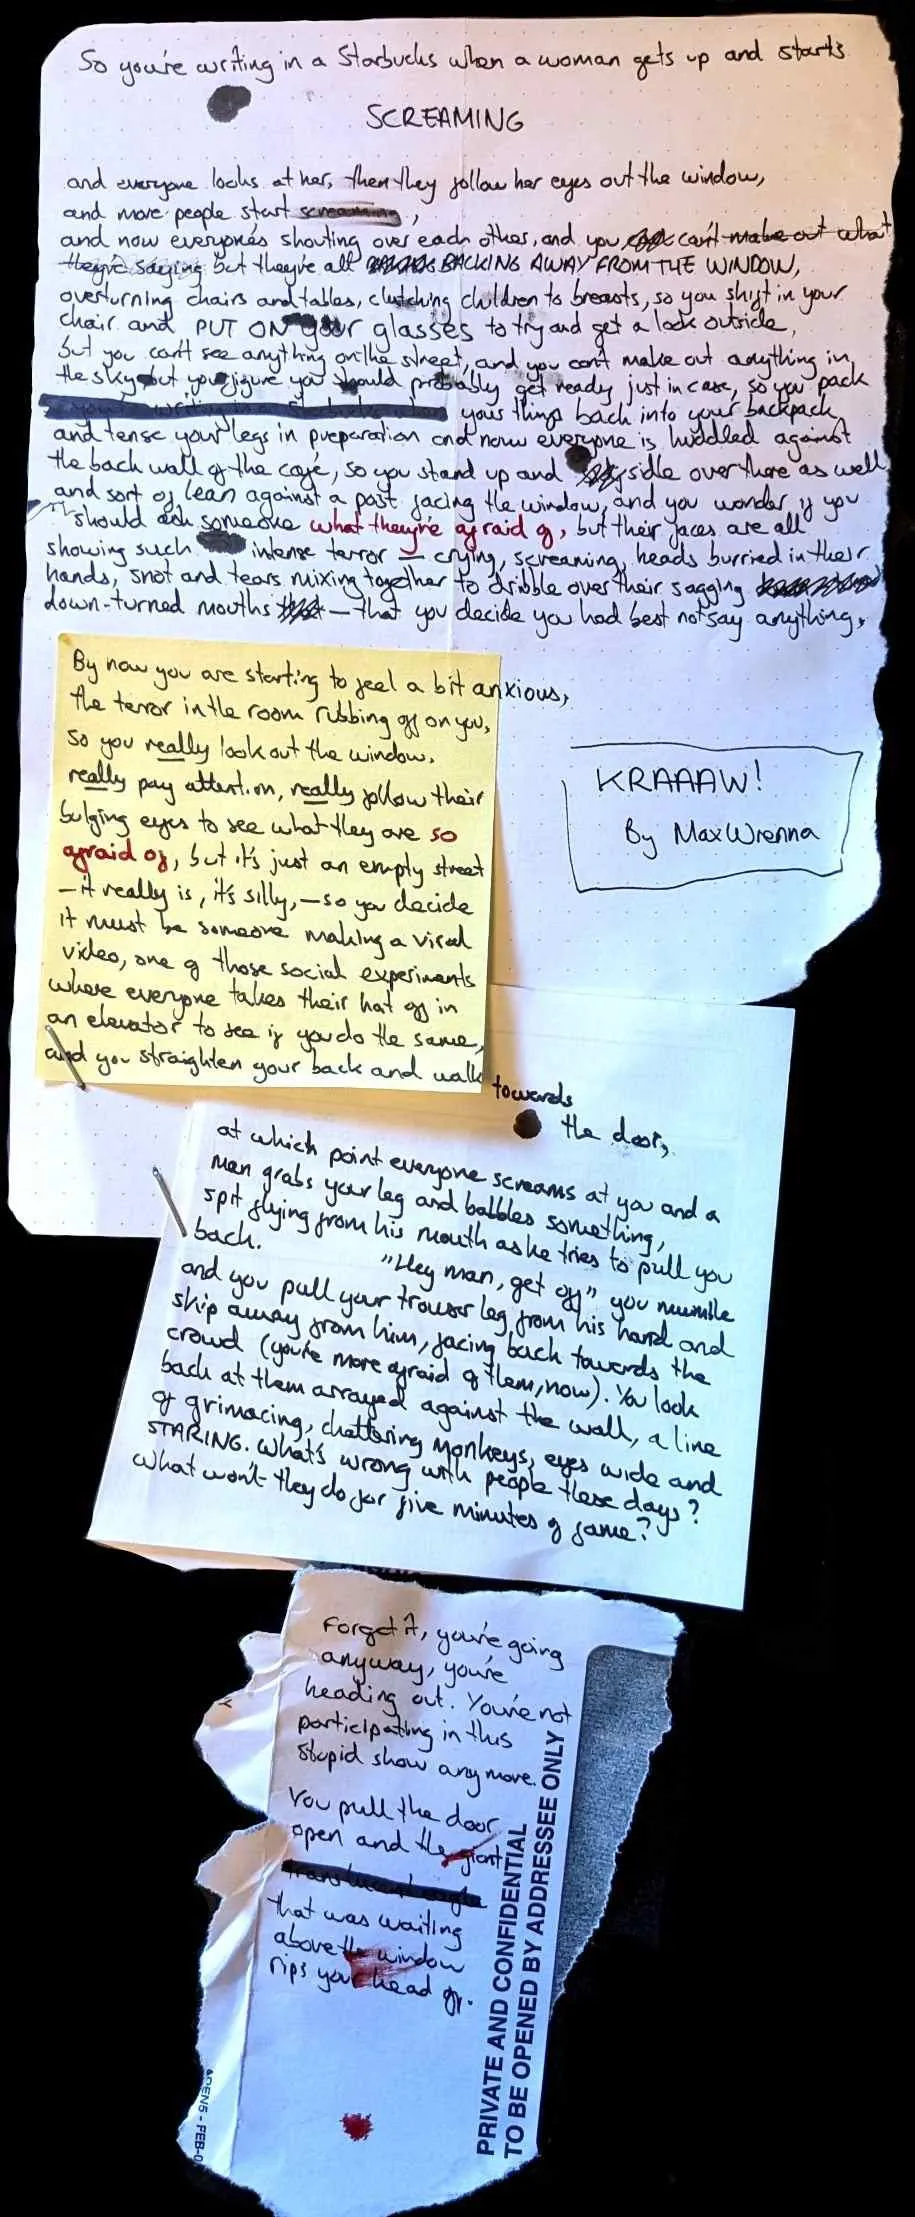 So you're writing in a Starbucks when a woman gets up and starts
SCREAMING
and everyone looks at her, then they follow her eyes out the window,
and more people start screaming,
and now everyone's shouting over each other, and you can't make out what
they're saying but they're all BACKING AWAY FROM THE WINDOW,
overturning chairs and tables, clutching children to breasts, so you shift in your
chair and PUT ON your glasses to try and get a look outside,
but you can't see anything on the street, and you can't make out anything in
the sky but you figure you should probably get ready just in case, so you pack
your things back into your backpack
and tense your legs in preparation and now everyone is huddled against
the back wall of the café, so you stand up and sidle over there as well
and sort of lean against a post facing the window, and you wonder if you
should ask someone what they're afraid of, but their faces are all
showing such intense terror – crying, screaming, heads burried in their
hands, snot and tears mixing together to dribble over their sagging
down-turned mouths – that you decide you had best not say anything,
By now you are starting to feel a bit anxious,
the terror in the room rubbing off on you,
so you really look out the window.
really pay attention, really follow their
bulging eyes to see what they are so
afraid of, but it's just an empty street
– it really is, it's silly, – so you decide
it must be someone making a viral
video, one of those social experiments
where everyone takes their hat off in
an elevator to see if you do the same,
and you straighten your back and walk
towards
the door,
KRAAAW!
By Max Wrenna
at which point everyone screams at you and a
man grabs your leg and babbles something,
spit flying from his mouth as he tries to pull you
back. "Hey man, get off" you mumble
and you pull your trouser leg from his hand and
skip away from him, facing back towards the
crowd (you're more afraid of them, now). You look
back at them arrayed against the wall, a line
of grimacing, chattering monkeys, eyes wide and
STARING. What's wrong with people these days?
What won't they do for five minutes of fame?
Forget it, you're going
anyway, you're
heading out. You're not
participating in this
stupid show anymore.
You pull the door
open and the giant
translucent eagle
that was waiting
above the window
rips your head off.
PRIVATE AND CONFIDENTIAL
TO BE OPENED BY ADDRESSEE ONLY